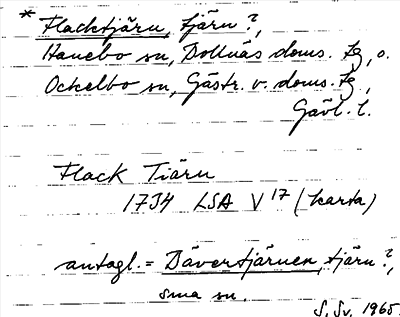 * Flacktjärn, tjärn?,
Hanebo sn, Bollnäs doms. tg, o.
Ockelbo sn, Gästr. v. doms. tg,
Gävl. l.
Flack Tiärn
1734 LSA V 17 (karta)
antagl. = Dävertjärnen, tjärn?,
sma sn.
S. Sv. 1965.